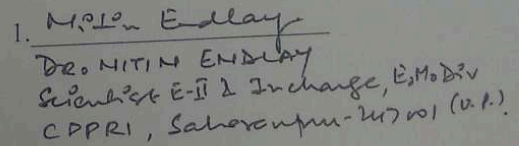 1. Nitin Endlay
DR. NITIN ENDLAY
Scientist E-II & Incharge, E.M. Div
CPPRI, Saharanpur-247001 (U.P.)